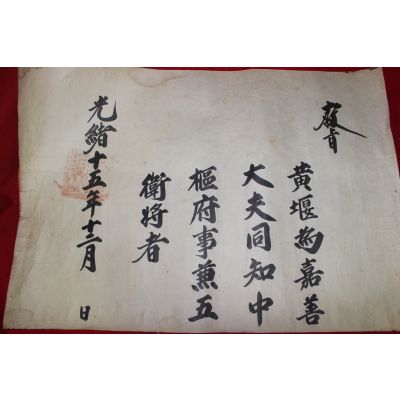 敎旨
黃堰為嘉善
大夫同知中
樞府事兼五
衛將者
光緖十五年十二月 日